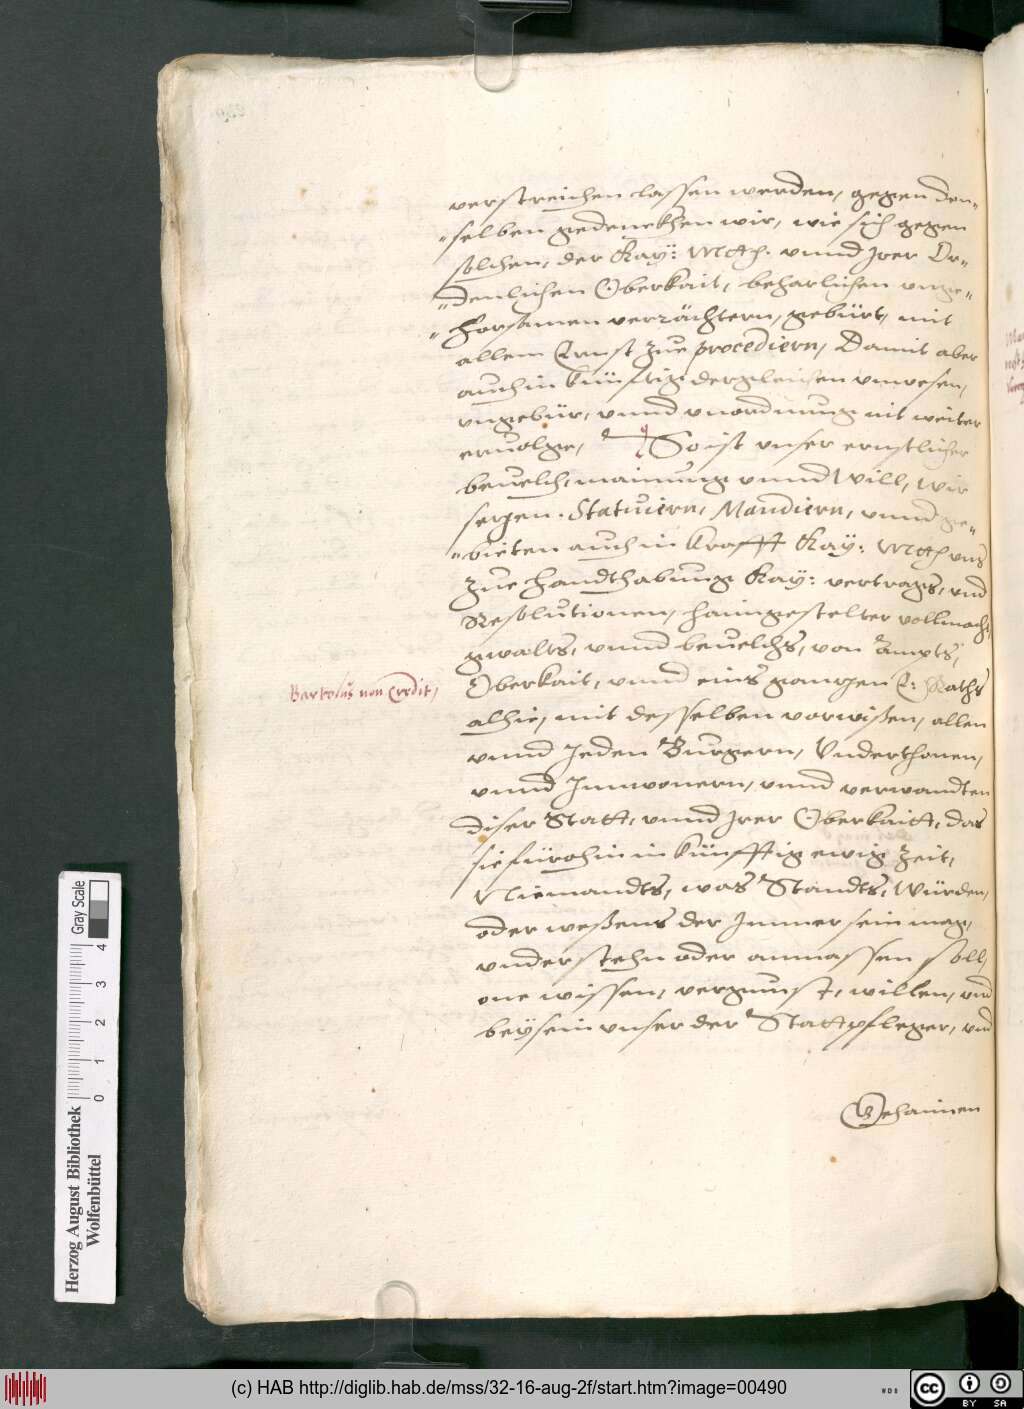 verstreichen lassen werden, gegen den-
selben gedenckhen wir, wie sich gegen
solchen, der Kay: Mtt. vnnd Irer Or-
denlichen Oberkait, beharlichen vnge-
horsamen verrächtern, gebürt, mit
allem Ernst zue procediern, Damit aber
auch in künfftig dergleichen vnwesen,
vngebür, vnnd vnordnung nit weiter
ervolge, So ist vnser ernstlicher
bevelch, mainung vnnd Will, Wir
sezen. Statuiern, Mandiern, vnnd ge-
bieten auch in krafft Kay: Mtt vns
zue handthabung Kay: vertrags, vnd
Resolutionen, haimgestelter vollmacht,
gwalts, vnnd bevelchs, von Ampts,
Bartolus non Credit,
Oberkait, vnnd eins ganzen E: Raths
alhie, mit desselben vorwißen, allen
vnnd Jeden Burgern, Vnderthonen,
vnnd Innwonern, vnnd verwandten
diser Statt, vnnd Irer Oberkaitt, das
sie fürohin in künfftig ewig Zeit,
Niemandts, was Standts, Würden,
oder weßens der Immer sein mag,
vnderstehn oder anmassen soll,
one wissen, vergunst, willen, vnd
beysein vnser der Stattpfleger, vnd
Gehaimen
Herzog August Bibliothek
Wolfenbüttel
0 1 2 3 4
Gray Scale
(c) HAB http://diglib.hab.de/mss/32-16-aug-2f/start.htm?image=00490
WDB
CC BY SA